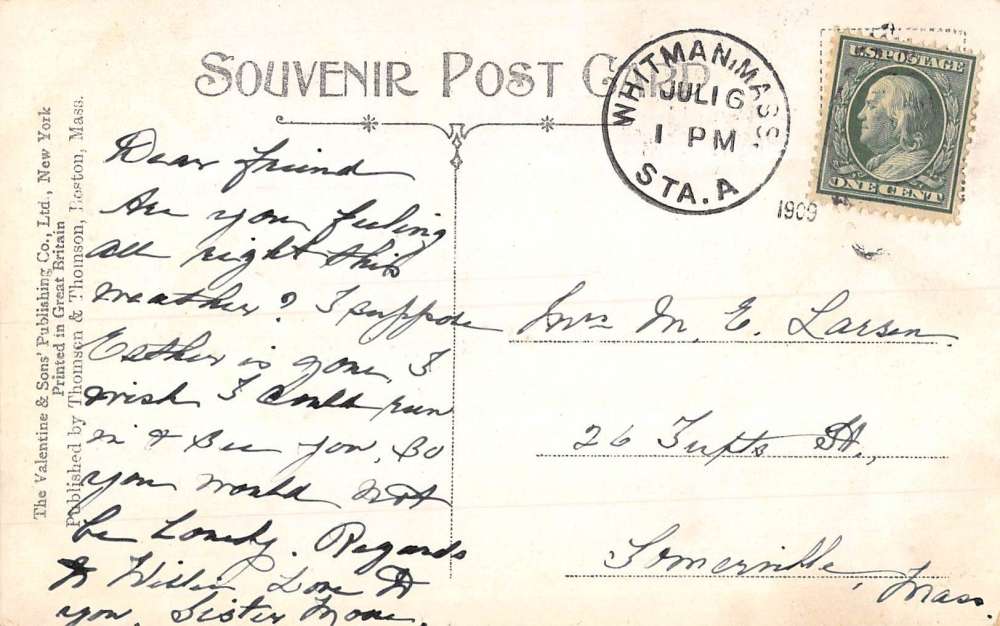 SOUVENIR POST CARD
WHITMAN, MASS.
JUL 16
1 PM
STA. A
1909
U.S. POSTAGE
ONE CENT
The Valentine & Sons' Publishing Co., Ltd., New York
Printed in Great Britain
Published by Thomson & Thomson, Boston, Mass.
Dear friend
Are you feeling
all right this
weather? I suppose
Esther is gone, I
wish I could run
in & see you, so
you would not
be lonely. Regards
to Love to
you, Sister
Mrs M. E. Larsen
26 Tufts St.,
Somerville,
Mass.